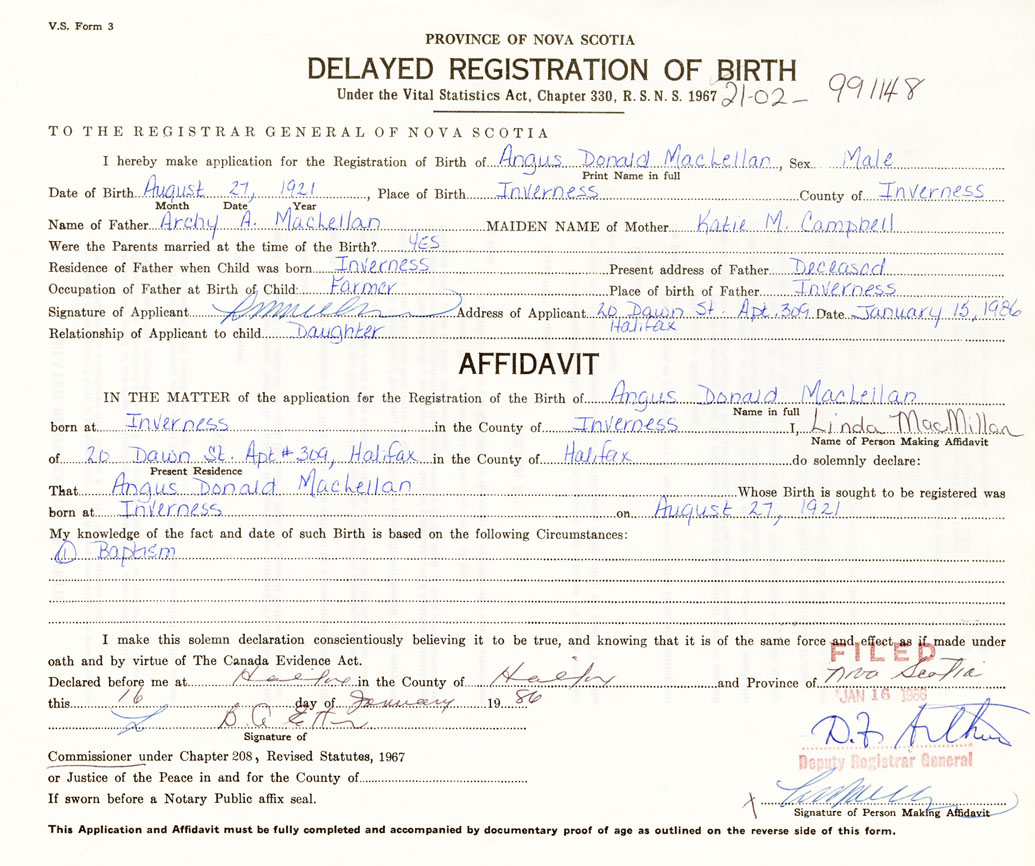 V.S. Form 3
PROVINCE OF NOVA SCOTIA
DELAYED REGISTRATION OF BIRTH
Under the Vital Statistics Act, Chapter 330, R. S. N. S. 1967 21-02- 991148
TO THE REGISTRAR GENERAL OF NOVA SCOTIA
I hereby make application for the Registration of Birth of Angus Donald MacLellan, Sex Male
Print Name in full
Date of Birth August 27, 1921, Place of Birth Inverness County of Inverness
Month Date Year
Name of Father Archy A. MacLellan MAIDEN NAME of Mother Katie M. Campbell
Were the Parents married at the time of the Birth? YES
Residence of Father when Child was born Inverness Present address of Father Deceased
Occupation of Father at Birth of Child: Farmer Place of birth of Father Inverness
Signature of Applicant Address of Applicant 20 Dawn St. Apt. 309 Date January 15, 1986
Halifax
Relationship of Applicant to child Daughter
AFFIDAVIT
IN THE MATTER of the application for the Registration of the Birth of Angus Donald MacLellan
Name in full
born at Inverness in the County of Inverness I, Linda MacMillan
Name of Person Making Affidavit
of 20 Dawn St. Apt # 309, Halifax in the County of Halifax do solemnly declare:
Present Residence
That Angus Donald MacLellan Whose Birth is sought to be registered was
born at Inverness on August 27, 1921
My knowledge of the fact and date of such Birth is based on the following Circumstances:
① Baptism
I make this solemn declaration conscientiously believing it to be true, and knowing that it is of the same force and effect as if made under
oath and by virtue of The Canada Evidence Act.
FILED
Declared before me at Halifax in the County of Halifax and Province of Nova Scotia
this 16 day of January 19 86
JAN 16 1986
Signature of
D.F. Arthur
Commissioner under Chapter 208, Revised Statutes, 1967
Deputy Registrar General
or Justice of the Peace in and for the County of
If sworn before a Notary Public affix seal.
X
Signature of Person Making Affidavit
This Application and Affidavit must be fully completed and accompanied by documentary proof of age as outlined on the reverse side of this form.